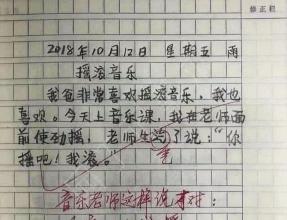 修正栏
2018年10月12日 星期五 雨
摇滚音乐
我爸非常喜欢摇滚音乐，我也
喜欢。今天上音乐课，我在老师面
前使劲摇，老师生气了说：“你
摇吧！我滚。”
笔
音乐老师这样说才对：